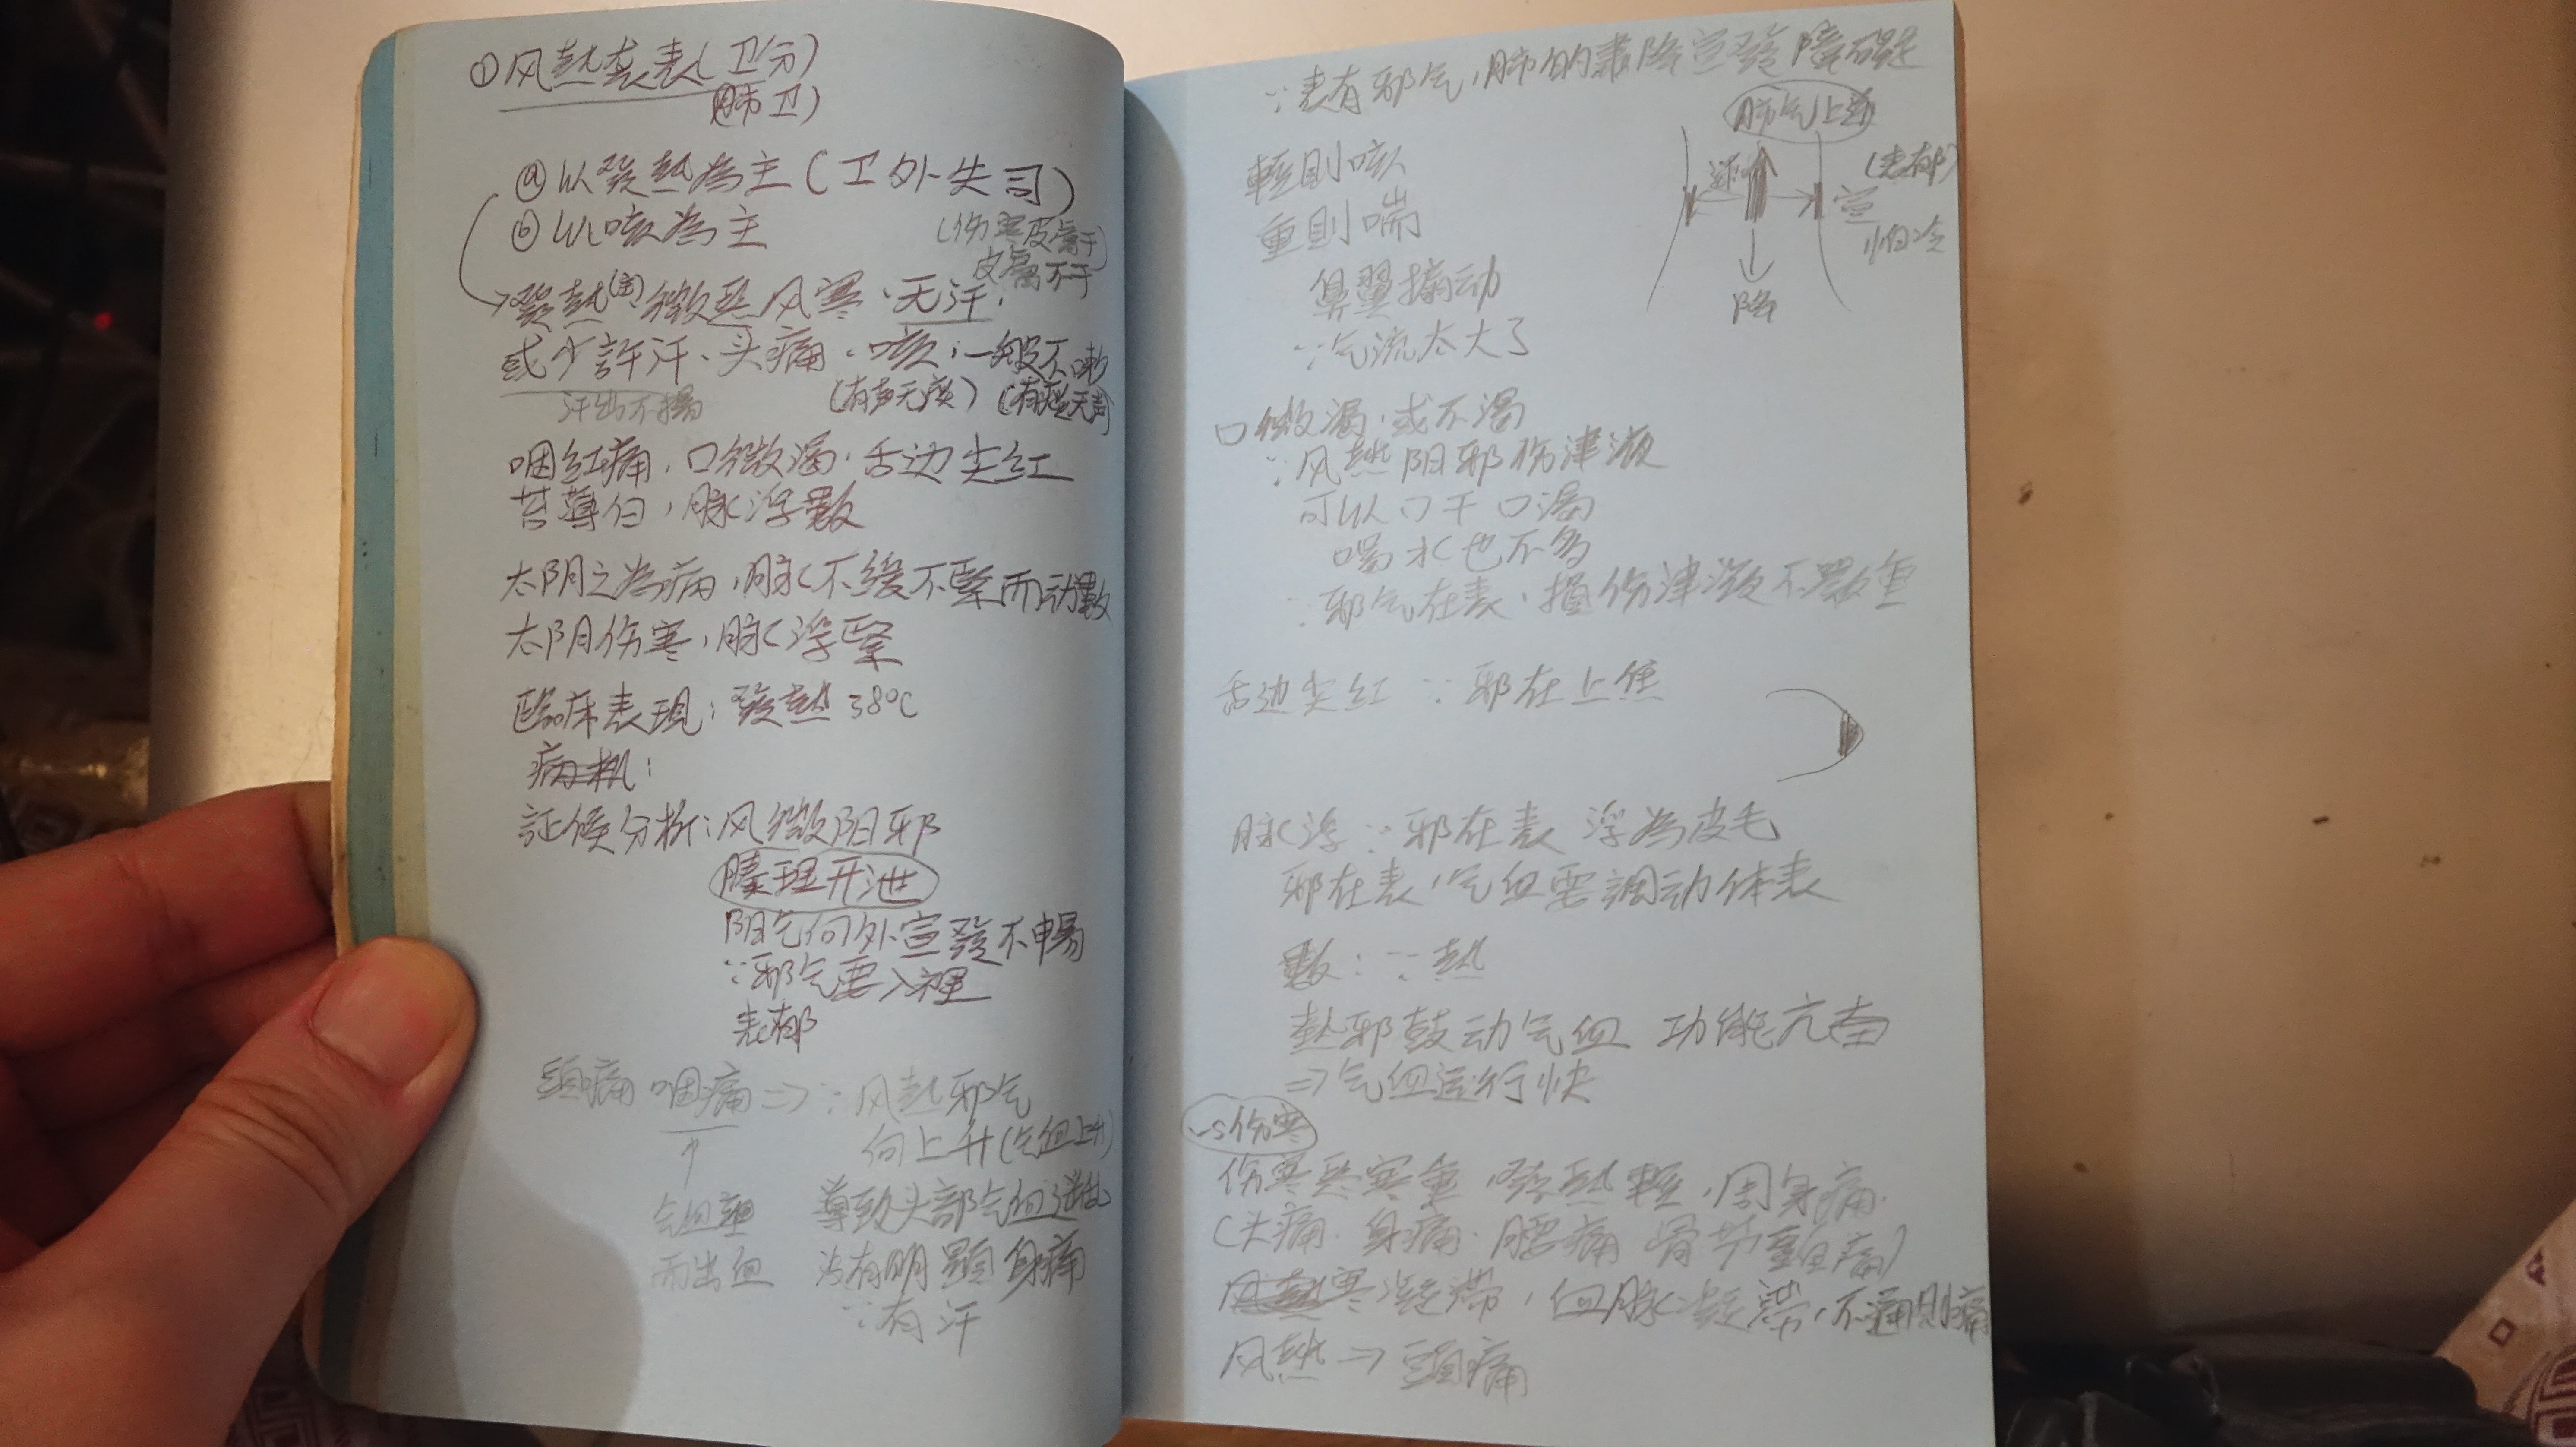 ①风热袭表(卫分)
(肺卫)
ⓐ以發热為主(卫外失司)
ⓑ以咳為主
(伤寒皮膚干)
皮膚不干
發热(主)微恶风寒、无汗、
或少許汗、头痛、咳,一般不嗽
汗出不暢
(有声无痰)(有痰无声)
咽红痛、口微渴、舌边尖红
苔薄白,脉浮數
太阴之為病,脉不缓不緊而动數
太阴伤寒,脉浮緊
臨床表現:發热38℃
病机:
証候分析:风微阳邪
腠理开泄
阳气向外宣發不暢
∵邪气要入裡
表郁
頭痛 咽痛 ⇒ ∵风热邪气
向上升(气血上升)
↑
气血壅 導致头部气血逆乱
而出血 没有明顯身痛
∵有汗
∵表有邪气,肺的肃降宣發障碍
肺气上逆
輕則咳
重則喘
鼻翼搧动
∵气流太大了
逆
宣
(表郁)
怕冷
降
口微渴、或不渴
∵风热阳邪伤津液
可以口干口渴
喝水也不多
∵邪气在表、損伤津液不嚴重
舌边尖红 ∵邪在上焦
脉浮∵邪在表 浮為皮毛
邪在表,气血要調动体表
數:∵热
热邪鼓动气血 功能亢奋
⇒气血运行快
伤寒
伤寒恶寒重,發热輕,周身痛
(头痛、身痛、腰痛 骨节疼痛)
寒凝滞,血脉凝滞,不通則痛
风热⇒頭痛